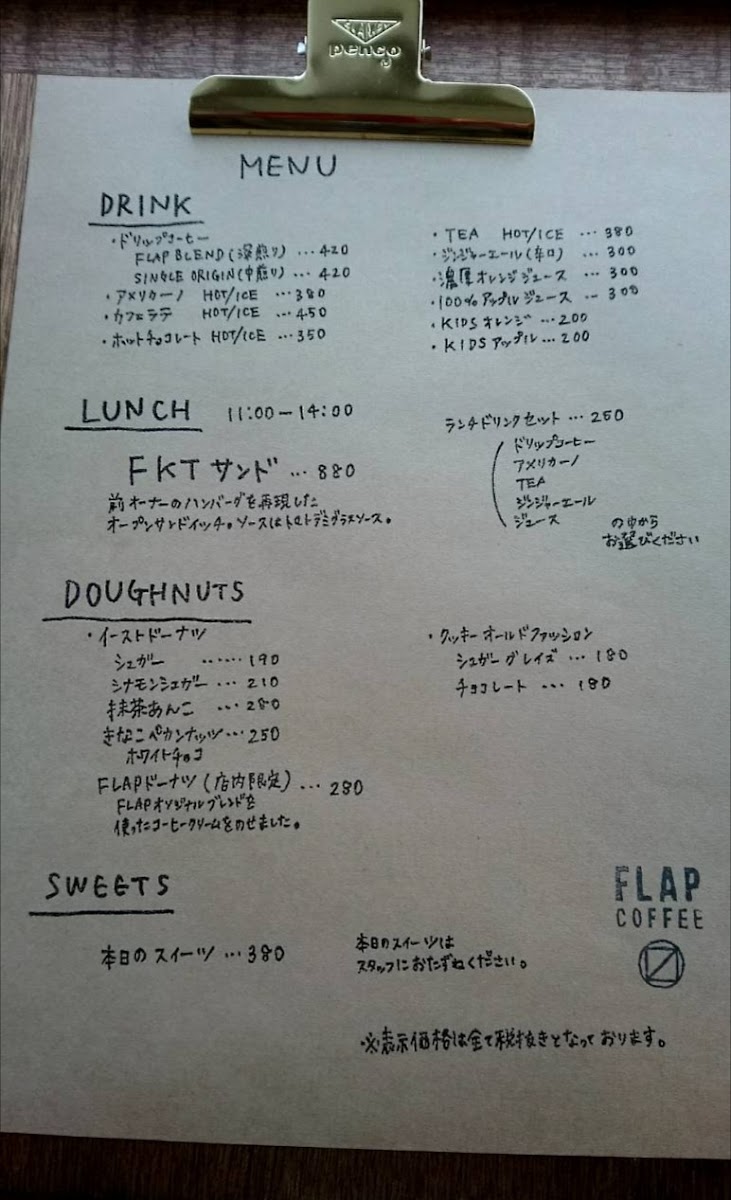 penco
MENU
DRINK
・ドリップコーヒー
FLAP BLEND(深煎り) … 420
SINGLE ORIGIN(中煎り) … 420
・アメリカーノ HOT/ICE … 380
・カフェラテ HOT/ICE … 450
・ホットチョコレート HOT/ICE … 350
・TEA HOT/ICE … 380
・ジンジャーエール(辛口) … 300
・濃厚オレンジジュース … 300
・100%アップルジュース … 300
・KIDSオレンジ … 200
・KIDSアップル … 200
LUNCH 11:00-14:00
FKTサンド … 880
前オーナーのハンバーグを再現した
オープンサンドイッチ。ソースはトマトデミグラスソース。
ランチドリンクセット … 250
ドリップコーヒー
アメリカーノ
TEA
ジンジャーエール
ジュース
の中から
お選びください
DOUGHNUTS
・イーストドーナツ
シュガー …… 190
シナモンシュガー … 210
抹茶あんこ … 280
きなこペカンナッツ … 250
ホワイトチョコ
FLAPドーナツ(店内限定) … 280
FLAPオリジナルブレンドを
使ったコーヒークリームをのせました。
・クッキーオールドファッション
シュガーグレイズ … 180
チョコレート … 180
SWEETS
本日のスイーツ … 380
本日のスイーツは
スタッフにおたずねください。
FLAP
COFFEE
※表示価格は全て税抜きとなっております。